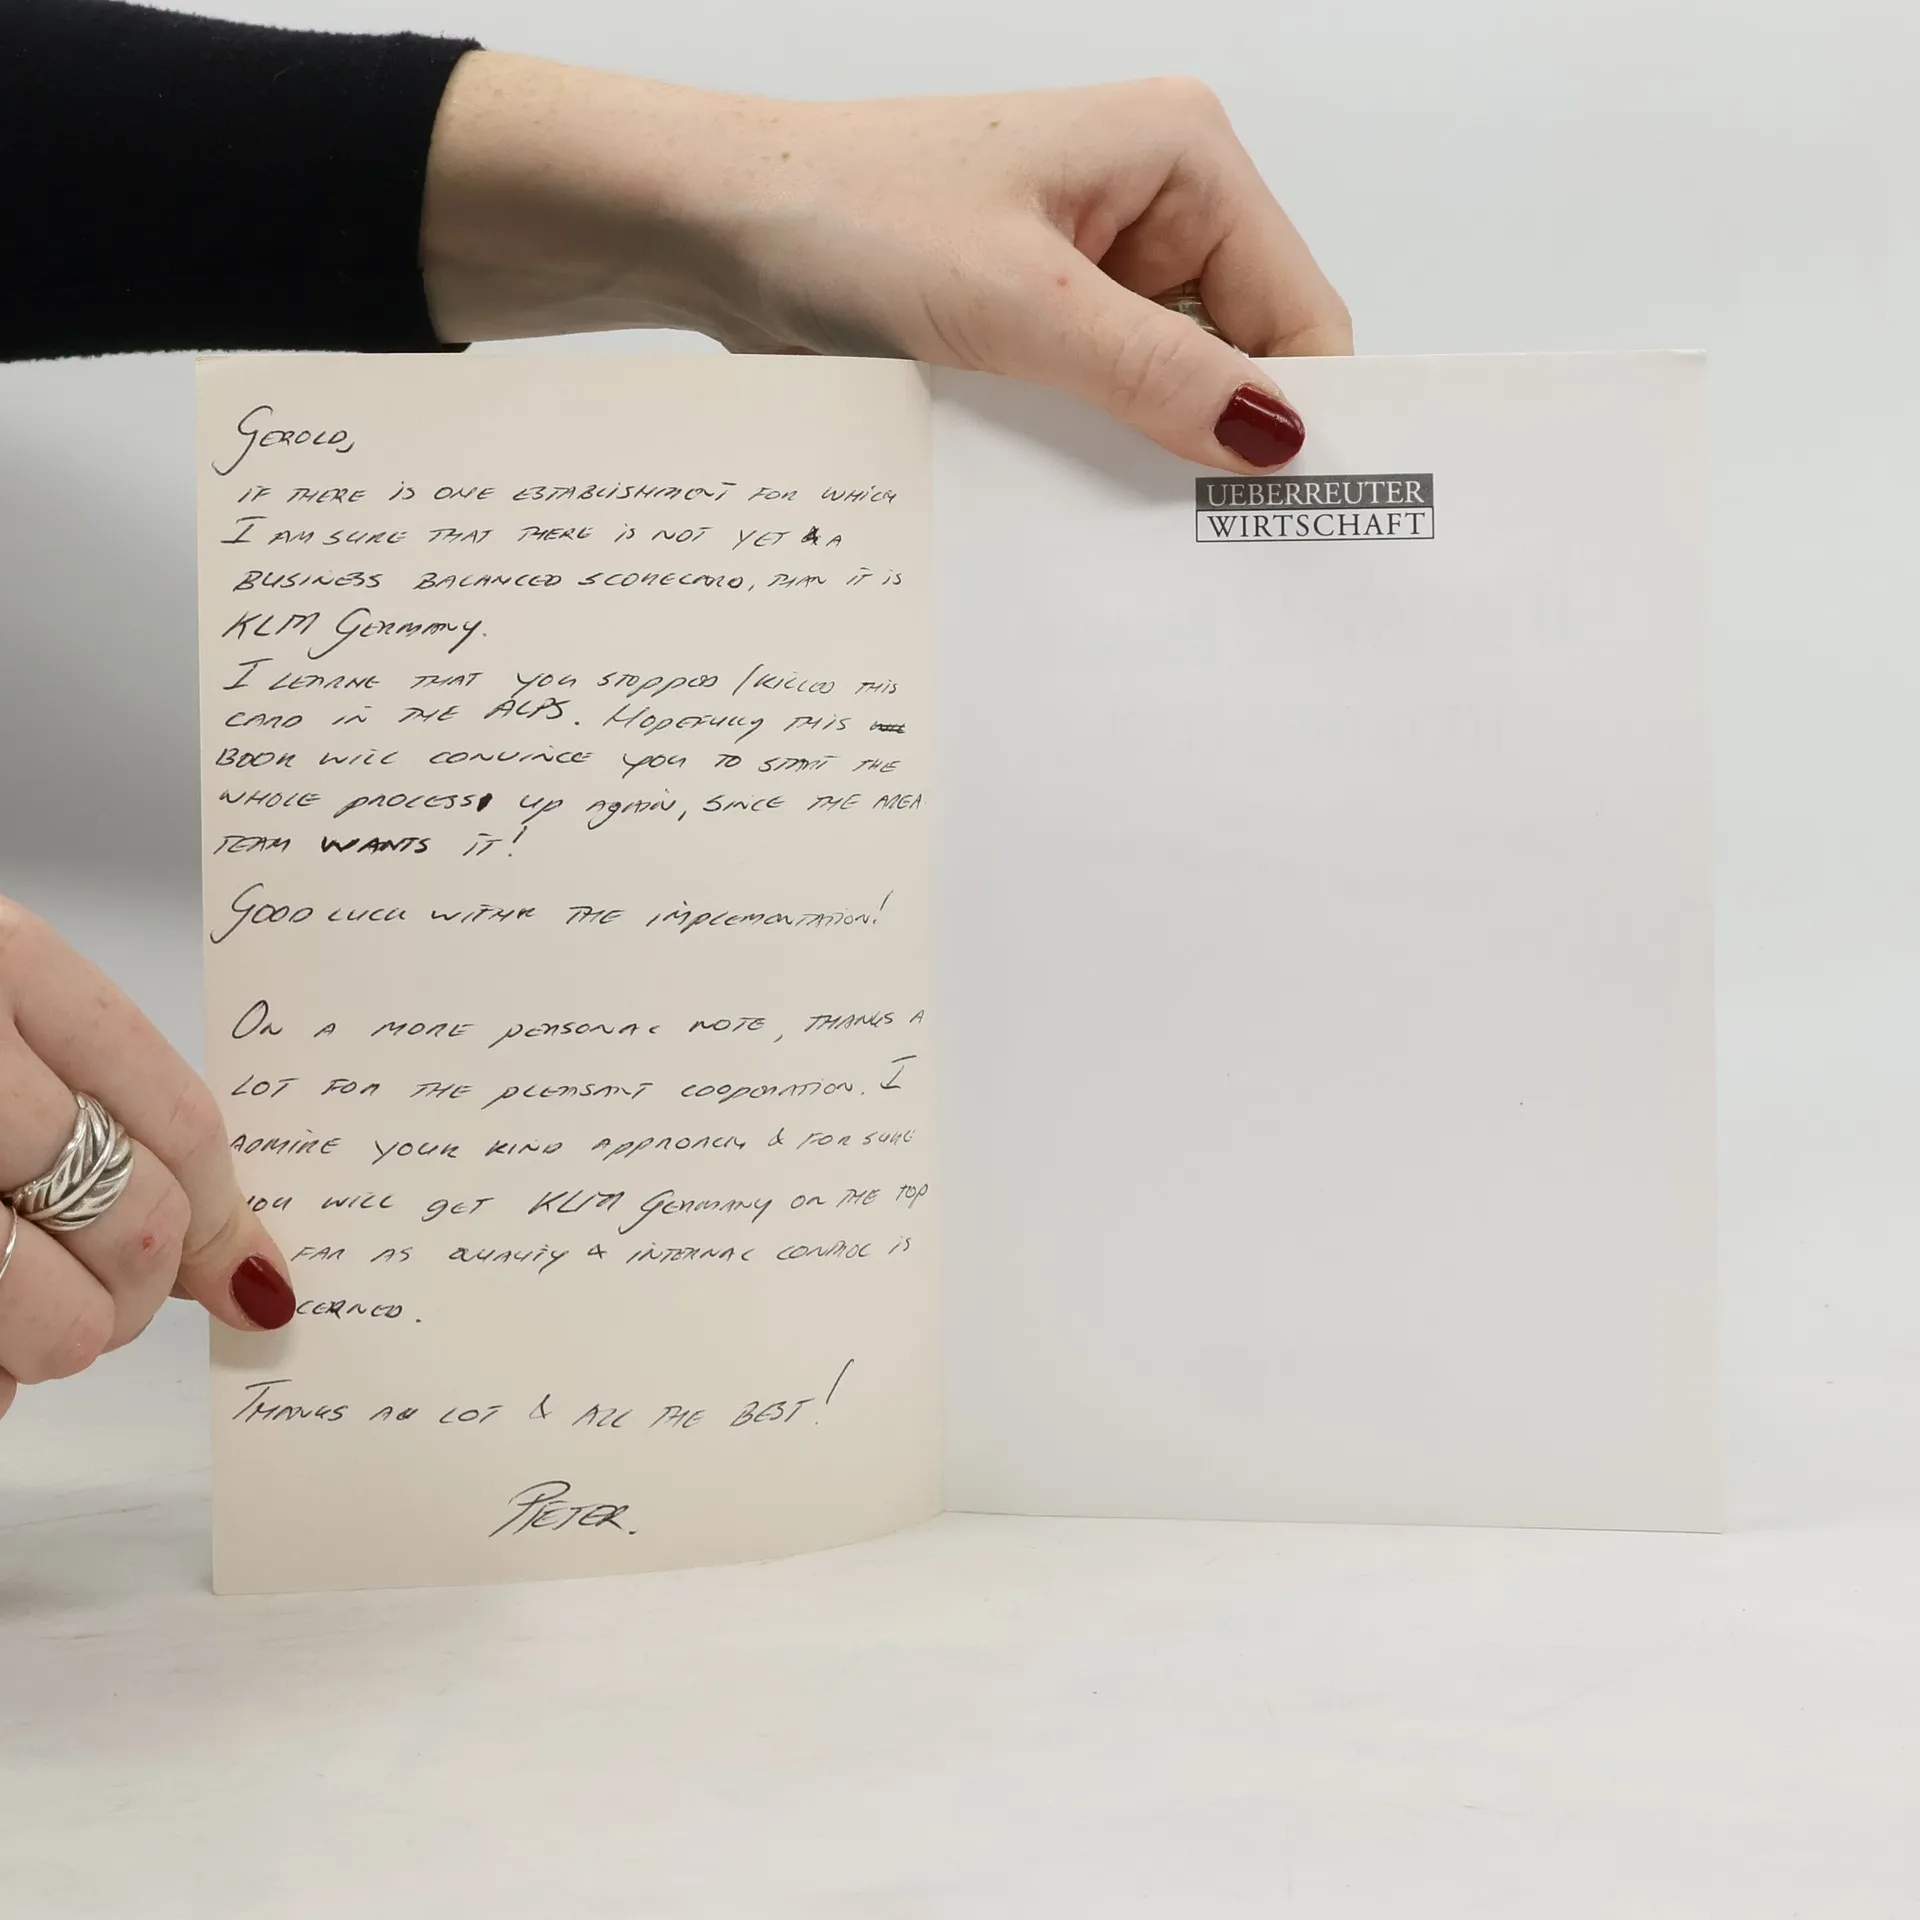 Gerold,
if there is one establishment for which
I am sure that there is not yet a
business balanced scorecard, than it is
KLM Germany.
I learne that you stopped / killed this
card in the ALPS. Hopefully this
book will convince you to start the
whole process up again, since the area
team wants it!
Good luck with the implementation!
On a more personal note, thanks a
lot for the pleasant cooporation. I
admire your kind approach & for sure
you will get KLM Germany on the top
far as quality & internal control is
cerned.
Thanks a lot & all the best!
Pieter.
UEBERREUTER
WIRTSCHAFT